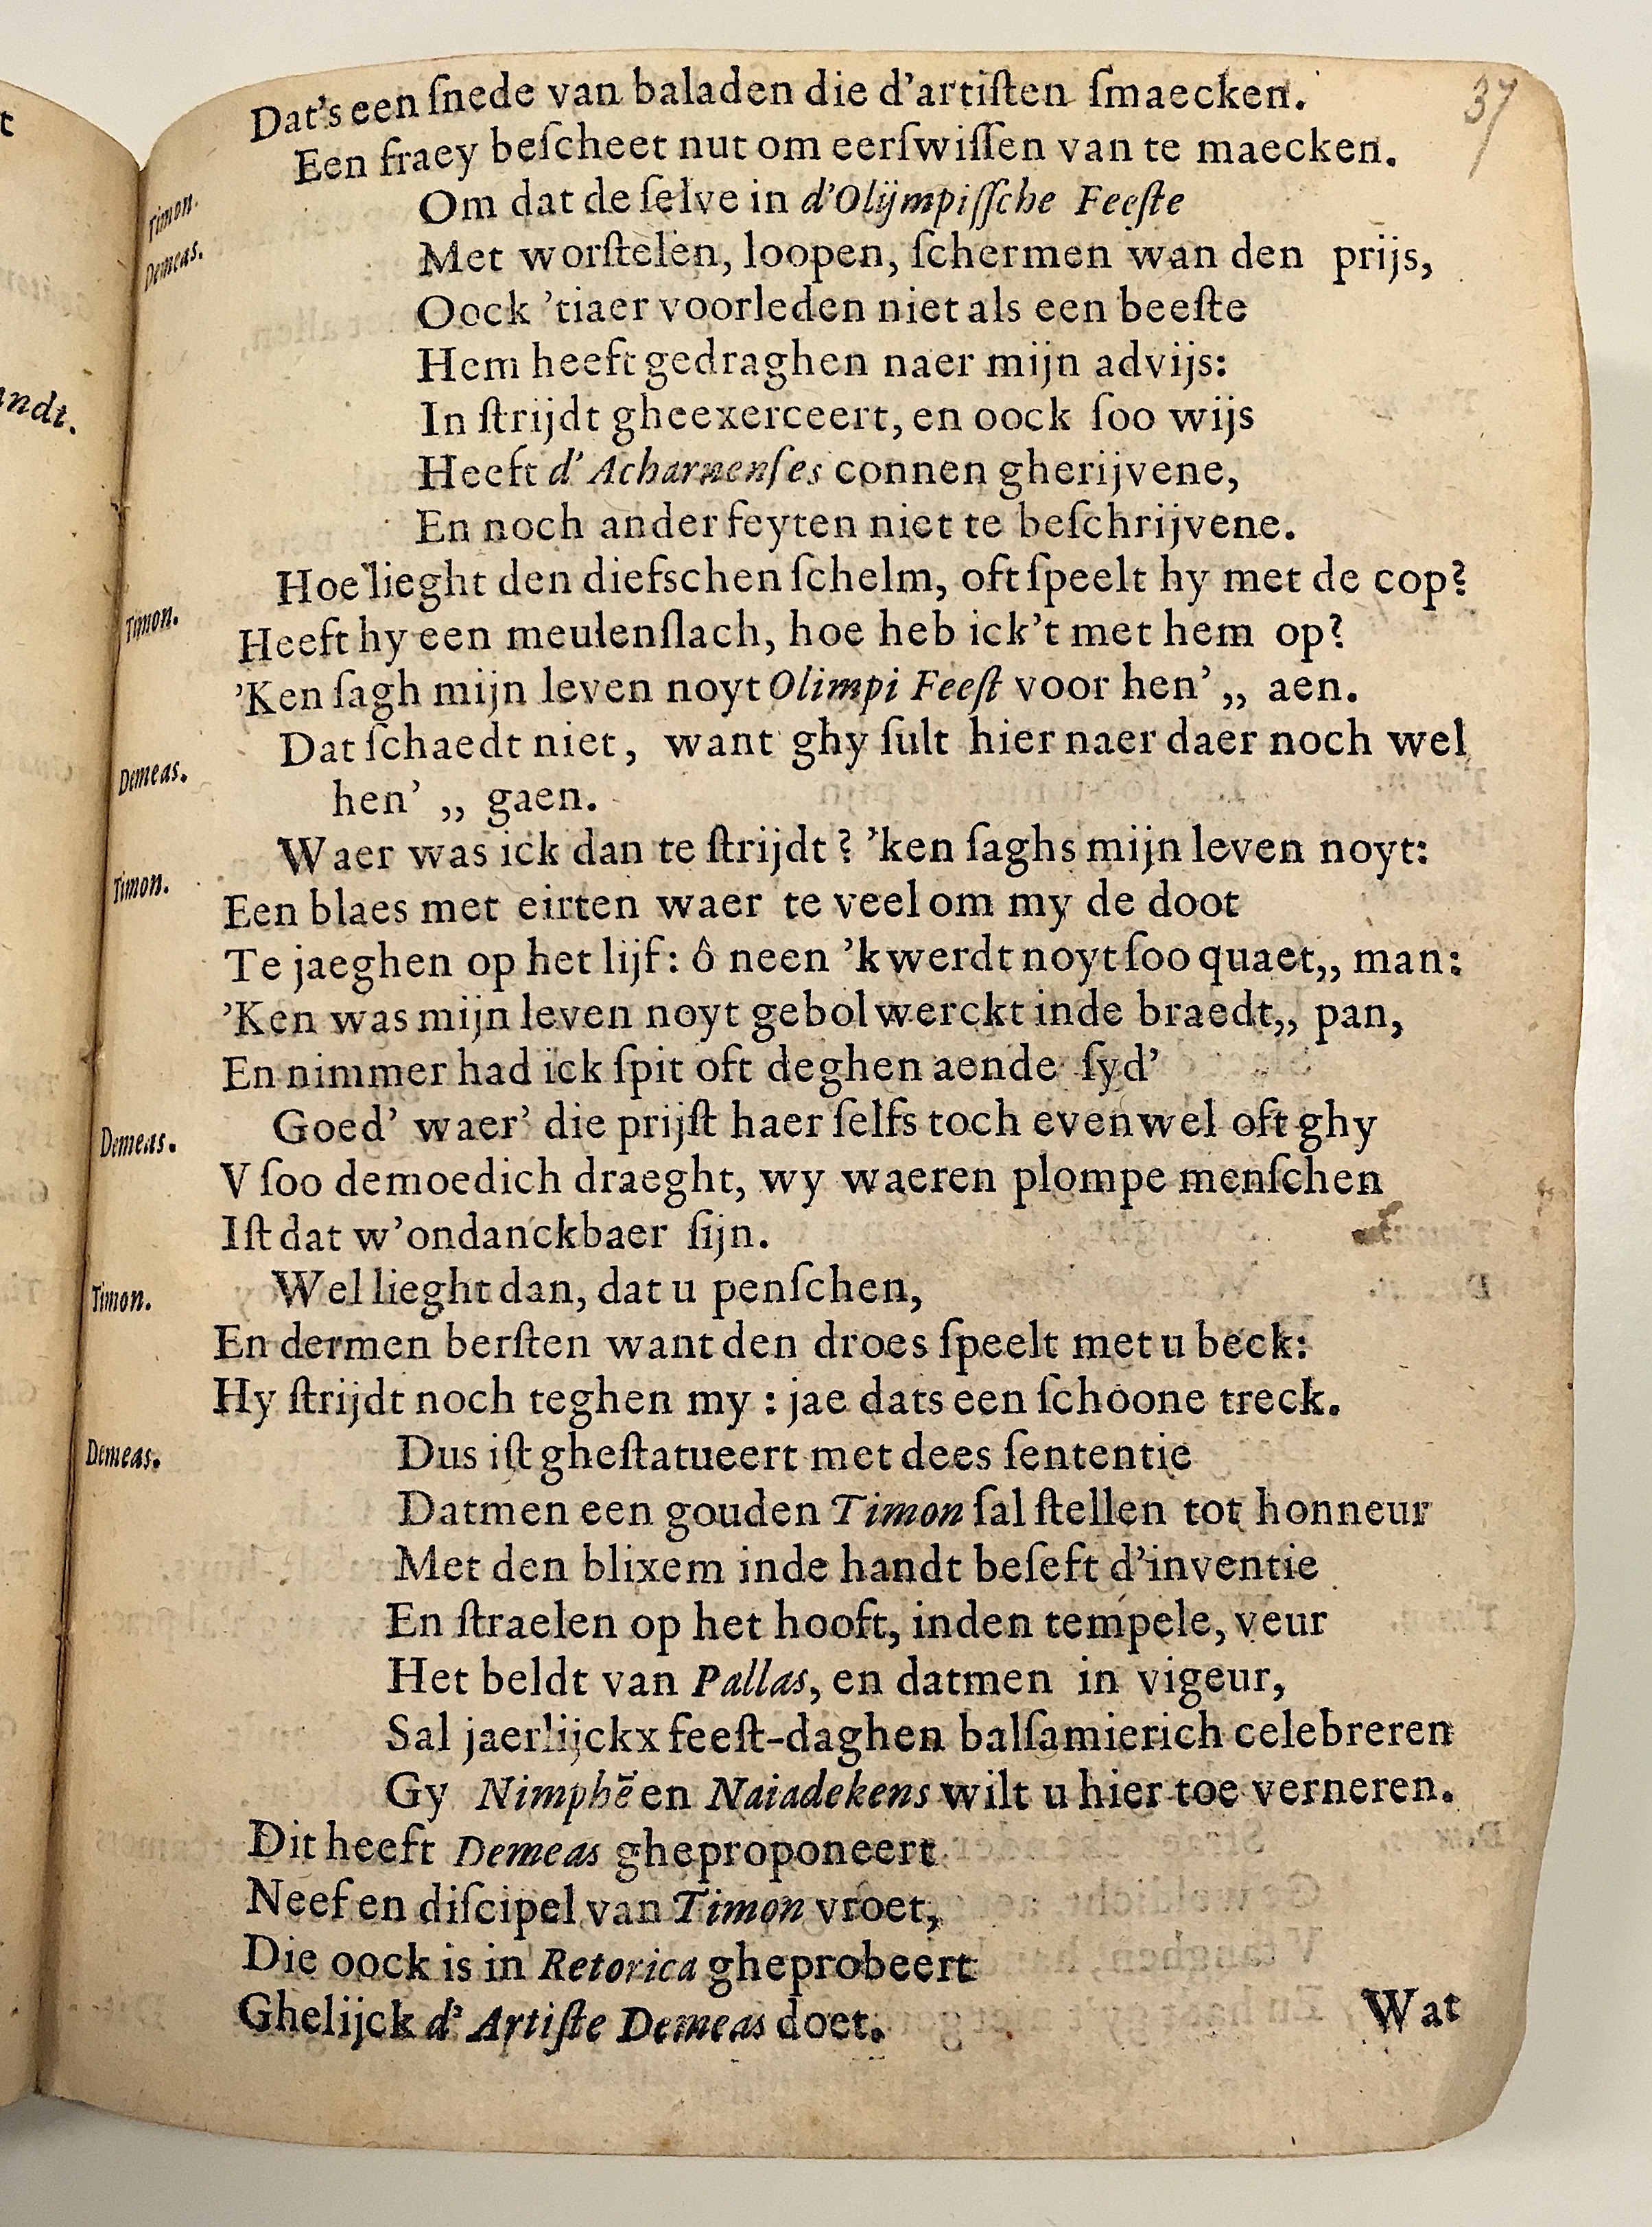 37
Dat's een ſnede van baladen die d'artiſten ſmaecken.
Timon. Een fraey beſcheet nut om eerſwiſſen van te maecken.
Demeas. Om dat de ſelve in d'Olijmpiſſche Feeſte
Met worſtelen, loopen, ſchermen wan den prijs,
Oock 'tiaer voorleden niet als een beeſte
Hem heeft gedraghen naer mijn advijs:
In ſtrijdt gheexerceert, en oock ſoo wijs
Heeft d'Acharnenſes connen gherijvene,
En noch ander feyten niet te beſchrijvene.
Timon. Hoe lieght den diefschen ſchelm, oft ſpeelt hy met de cop?
Heeft hy een meulenſlach, hoe heb ick't met hem op?
'Ken ſagh mijn leven noyt Olimpi Feeſt voor hen' „ aen.
Demeas. Dat ſchaedt niet, want ghy ſult hier naer daer noch wel
hen' „ gaen.
Timon. Waer was ick dan te ſtrijdt? 'ken ſaghs mijn leven noyt:
Een blaes met eirten waer te veel om my de doot
Te jaeghen op het lijf: ô neen 'k werdt noyt ſoo quaet„ man:
'Ken was mijn leven noyt gebolwerckt inde braedt„ pan,
En nimmer had ick ſpit oft deghen aende ſyd'
Demeas. Goed' waer' die prijſt haer ſelfs toch evenwel oft ghy
V ſoo demoedich draeght, wy waeren plompe menſchen
Iſt dat w'ondanckbaer ſijn.
Timon. Wel lieght dan, dat u penſchen,
En dermen berſten want den droes ſpeelt met u beck:
Hy ſtrijdt noch teghen my : jae dats een ſchoone treck.
Demeas. Dus iſt gheſtatueert met dees ſententie
Datmen een gouden Timon ſal ſtellen tot honneur
Met den blixem inde handt beſeft d'inventie
En ſtraelen op het hooft, inden tempele, veur
Het beldt van Pallas, en datmen in vigeur,
Sal jaerlijckx feeſt-daghen balſamierich celebreren
Gy Nimphē en Naiadekens wilt u hier toe verneren.
Dit heeft Demeas gheproponeert
Neef en diſcipel van Timon vroet,
Die oock is in Retorica gheprobeert
Ghelijck d'Artiſte Demeas doet.
Wat